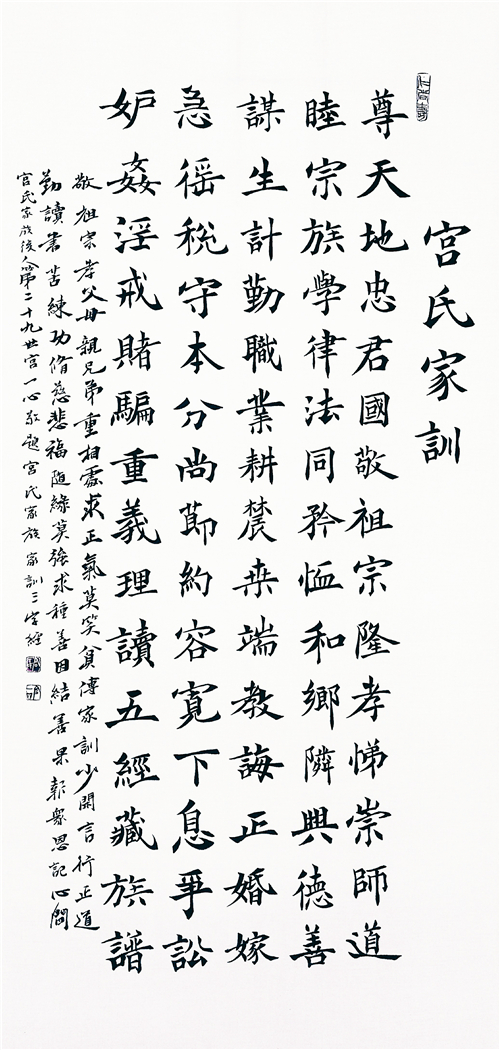 宮氏家訓
尊天地忠君國敬祖宗隆孝悌崇師道
睦宗族學律法同矜恤和鄉隣興德善
謀生計勤職業耕農桒端教誨正婚嫁
急徭稅守本分尚莭約容寬下息爭訟
妒姦淫戒賭騙重義理讀五經藏族譜
敬祖宗孝父母親兄弟重相處求正氣莫笑貧傳家訓少開言行正道
勤讀書苦練功脩慈悲福隨緣莫強求種善因結善果報眾恩記心間
宮氏家族後人第二十九世宮一心敬題宮氏家族家訓三字經